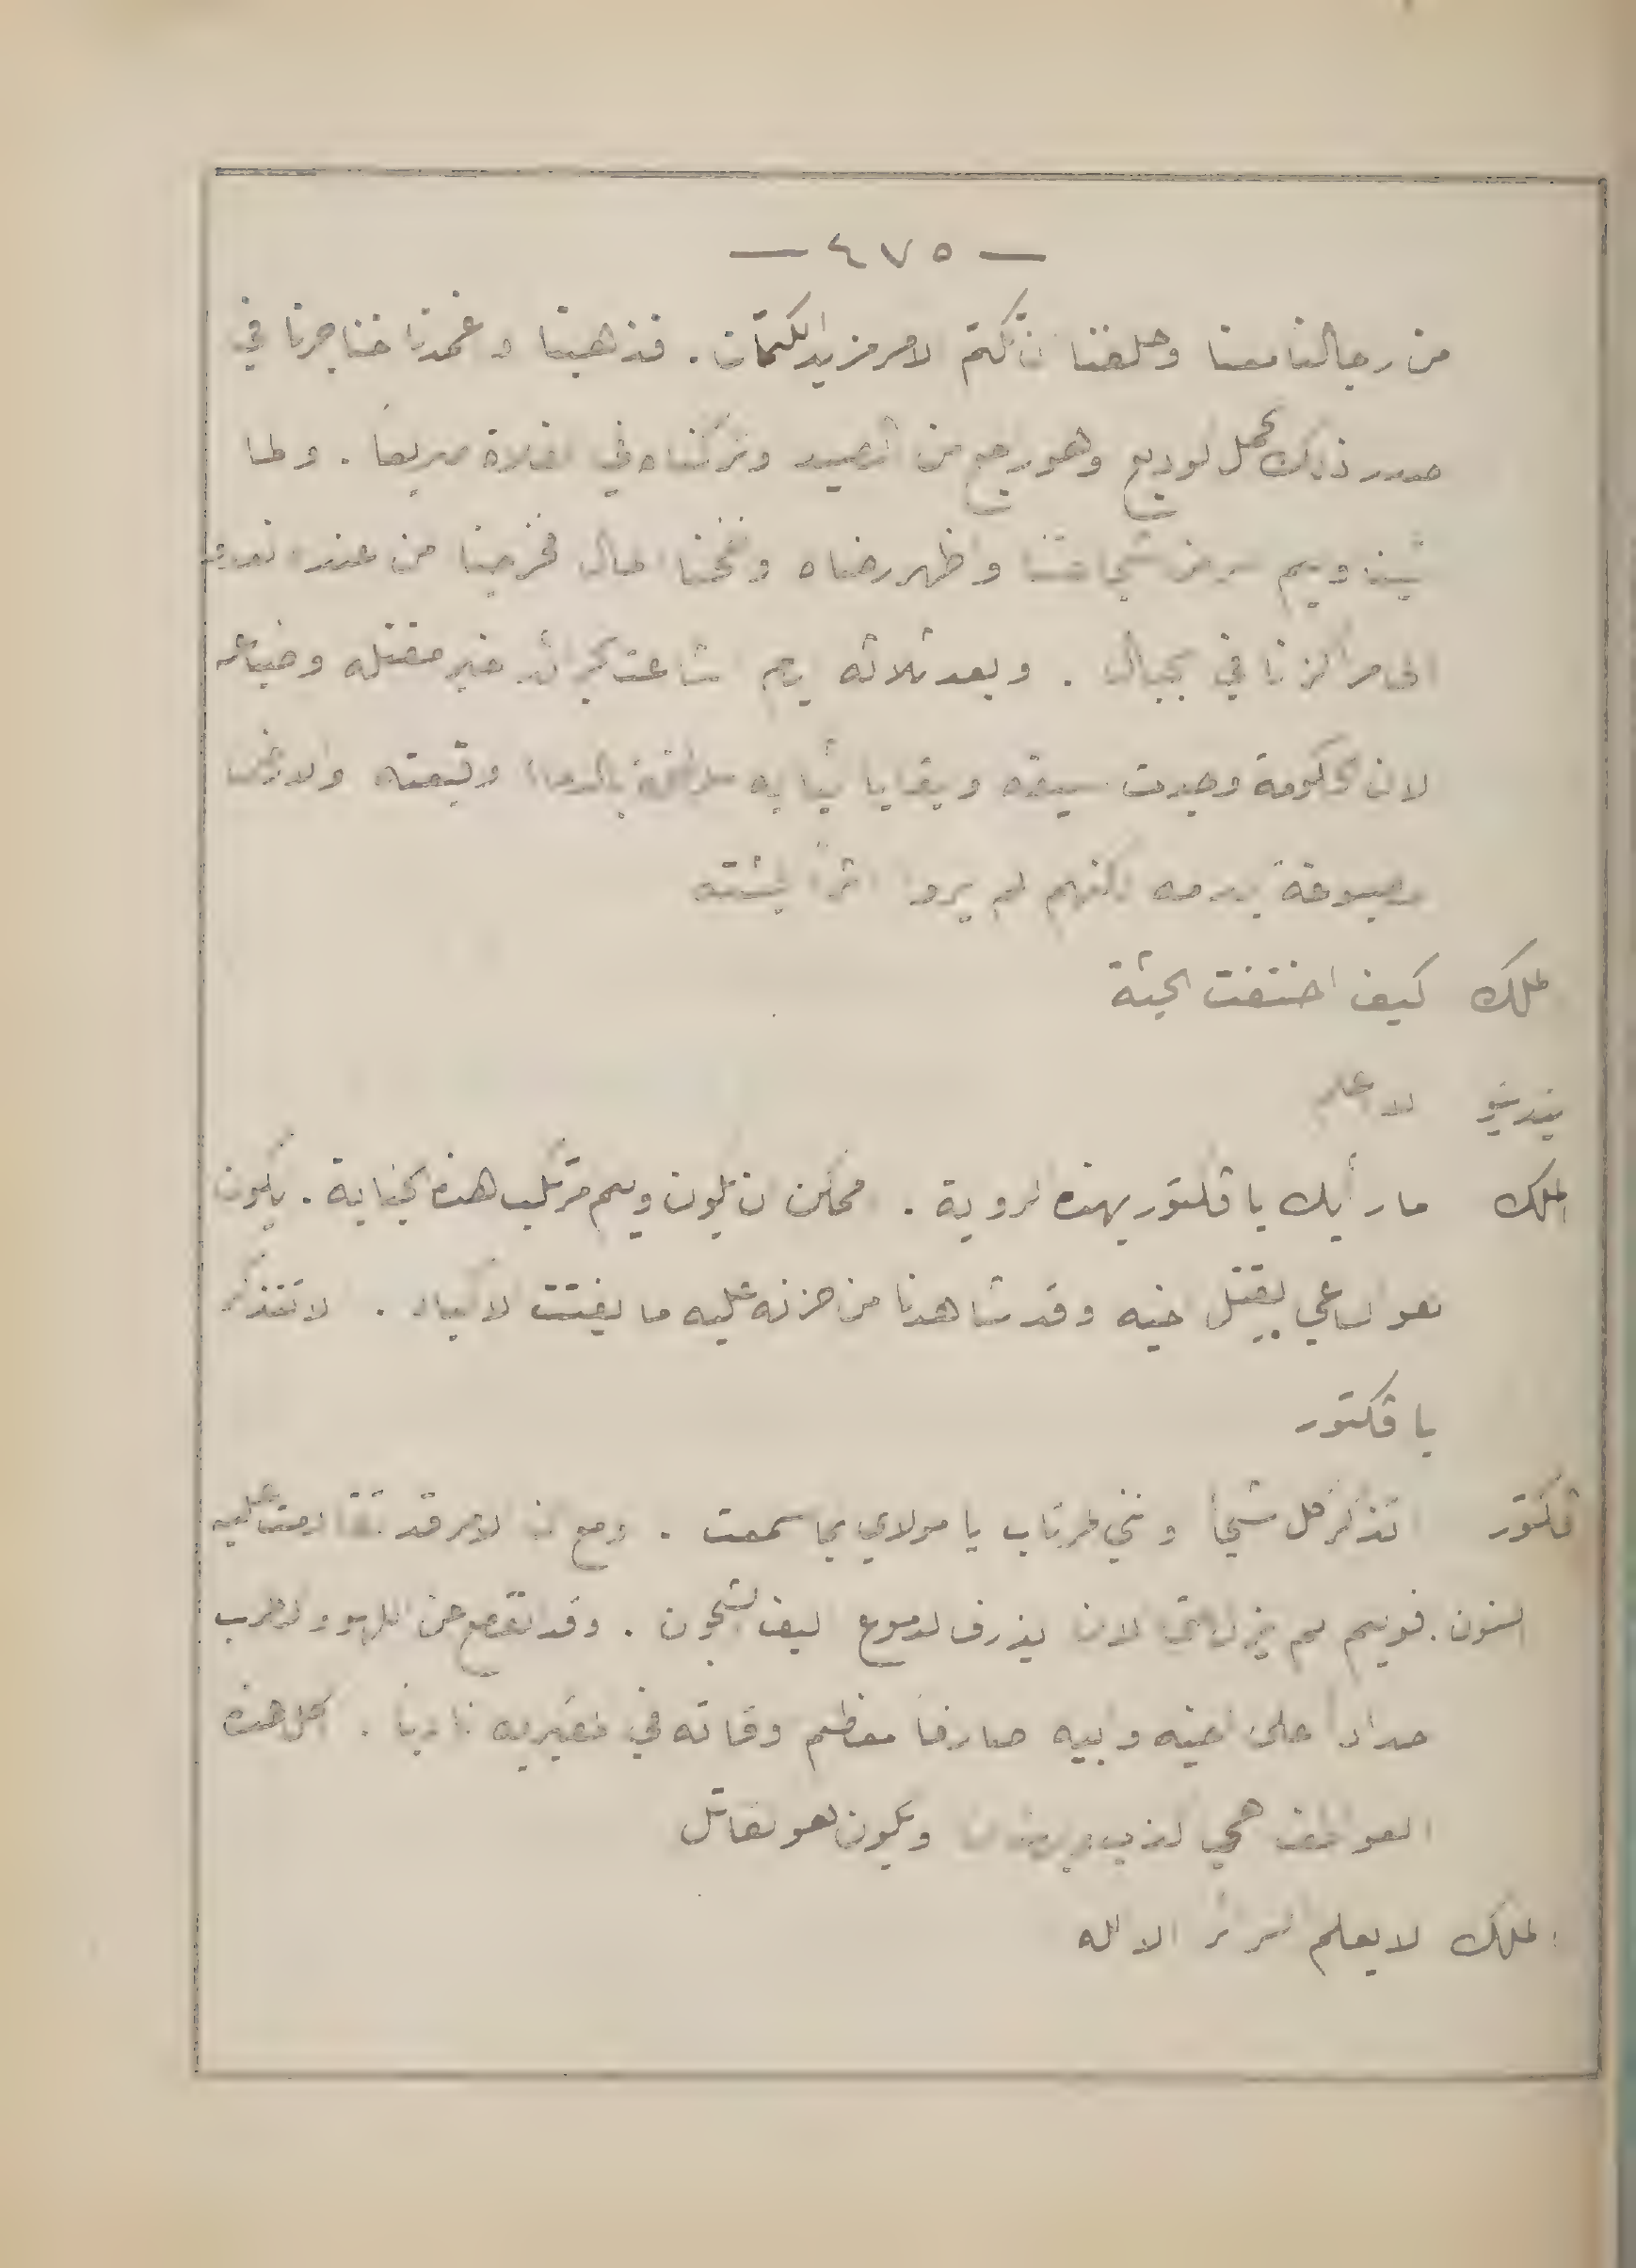 — ٤٧٥ —
من رجالنا معنا وحلفنا ان نكتم الامر مزيد الكتمان . فذهبنا وغمدنا خناجرنا في
صدر ذلك الحمل الوديع وهو راجع من الصيد وتركناه في الفلاة صريعاً . ولما
واظهر رضاه ونفحنا المال فخرجنا من عنده
الى مراكزنا في الجبال . وبعد ثلاثة ايام شاعت الجرائد خبر مقتله وضياعه
لان الحكومة وجدت سيفه وبقايا ثيابه ملطخة بالدماء وقبعته والارض
مصبوغة بدمه لكنهم لم يروا اثراً لجثته
الملك كيف اختفت الجثة
لا اعلم
الملك ما رأيك يا ڤكتور بهذه الروية . اممكن ان يكون وليم مرتكب هذه الجناية . ايكون
هو الساعي بقتل اخيه وقد شاهدنا من حزنه عليه ما يفتت الاكباد . الا تتذكر
يا ڤكتور
ڤكتور اتذكر كل شيء وانني لمرتاب يا مولاي بما سمعت . ومع ان الامر قد تقادمت عليه
السنون . فوليم لم يزل حتى الان يذرف الدموع اليف الشجون . وقد انقطع عن اللهو والطرب
حداداً على اخيه وابيه صارفاً معظم اوقاته في قبريه نادباً . اكل هذه
العواطف هي كذب ويكون هو القاتل
الملك لا يعلم السرائر الا الله